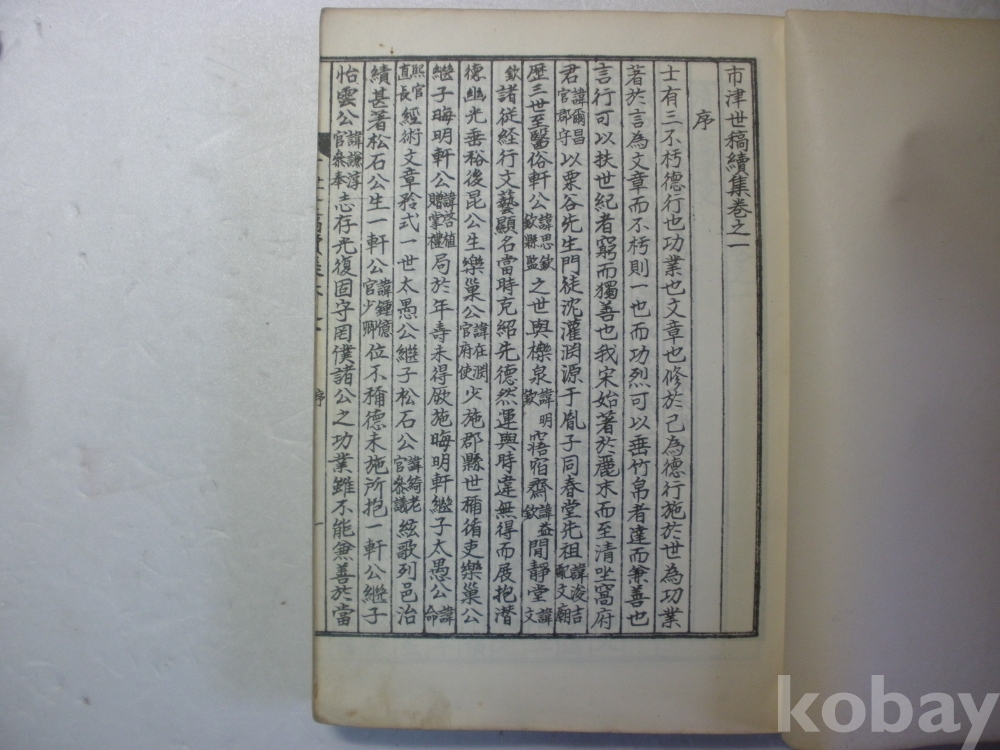 市津世稿續集卷之一
序
士有三不朽德行也功業也文章也修於己為德行施於世為功業
著於言為文章而不朽則一也而功烈可以垂竹帛者達而兼善也
言行可以扶世紀者窮而獨善也我宋始著於麗末而至清坐窩府
君諱爾昌官郡守以栗谷先生門徒沈灌淵源于胤子同春堂先祖諱浚吉配文廟
歷三世至醫俗軒公諱思欽欽縣監之世與櫟泉諱明欽寤宿齋諱益欽閒靜堂諱文
欽諸從経行文藝顯名當時克紹先德然運與時違無得而展抱潜
德幽光垂裕後昆公生樂巢公諱在渕官府使少施郡縣世稱循吏樂巢公
繼子晦明軒公諱啓植贈掌禮局於年壽未得厥施晦明軒繼子太愚公諱命
熙官直長經術文章矜式一世太愚公繼子松石公諱綺老官參議絃歌列邑治
績甚著松石公生一軒公諱鍾億官少卿位不稱德未施所抱一軒公繼子
怡雲公諱謙淳官參奉志存光復固守罔僕諸公之功業雖不能兼善於當
序
一
kobay